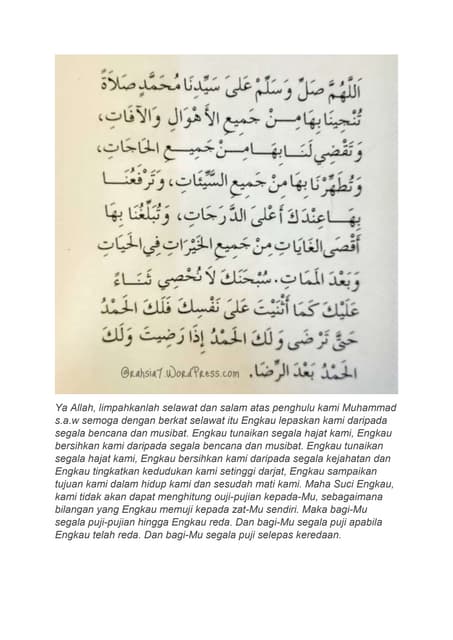 اَللّٰهُمَّ صَلِّ وَسَلِّمْ عَلىَ سَيِّدِنَا مُحَمَّدٍ صَلاَةً
تُنْجِينَا بِهَا مِنْ جَمِيعِ الأَهْوَالِ وَالآفَاتِ،
وَتَقْضِي لَنَا بِهَا مِنْ جَمِيعِ الحَاجَاتِ،
وَتُطَهِّرْنَا بِهَا مِنْ جَمِيعِ السَّيِّئَاتِ، وَتَرْفَعُنَا
بِهَا عِنْدَكَ أَعْلىَ الدَّرَجَاتِ، وَتُبَلِّغُنَا بِهَا
أَقْصَى الغَايَاتِ مِنْ جَمِيعِ الخَيْرَاتِ فِي الحَيَاتِ
وَبَعْدَ المَمَاتِ. سُبْحَنَكَ لاَ نُحْصِي ثَنَاءً
عَلَيْكَ كَمَا أَثْنَيْتَ عَلىَ نَفْسِكَ فَلَكَ الحَمْدُ
حَتَّى تَرْضَى وَلَكَ الحَمْدُ إِذَا رَضِيتَ وَلَكَ
الحَمْدُ بَعْدَ الرِّضَا.
@rahsia7.WordPress.com
Ya Allah, limpahkanlah selawat dan salam atas penghulu kami Muhammad
s.a.w semoga dengan berkat selawat itu Engkau lepaskan kami daripada
segala bencana dan musibat. Engkau tunaikan segala hajat kami, Engkau
bersihkan kami daripada segala bencana dan musibat. Engkau tunaikan
segala hajat kami, Engkau bersihkan kami daripada segala kejahatan dan
Engkau tingkatkan kedudukan kami setinggi darjat, Engkau sampaikan
tujuan kami dalam hidup kami dan sesudah mati kami. Maha Suci Engkau,
kami tidak akan dapat menghitung ouji-pujian kepada-Mu, sebagaimana
bilangan yang Engkau memuji kepada zat-Mu sendiri. Maka bagi-Mu
segala puji-pujian hingga Engkau reda. Dan bagi-Mu segala puji apabila
Engkau telah reda. Dan bagi-Mu segala puji selepas keredaan.